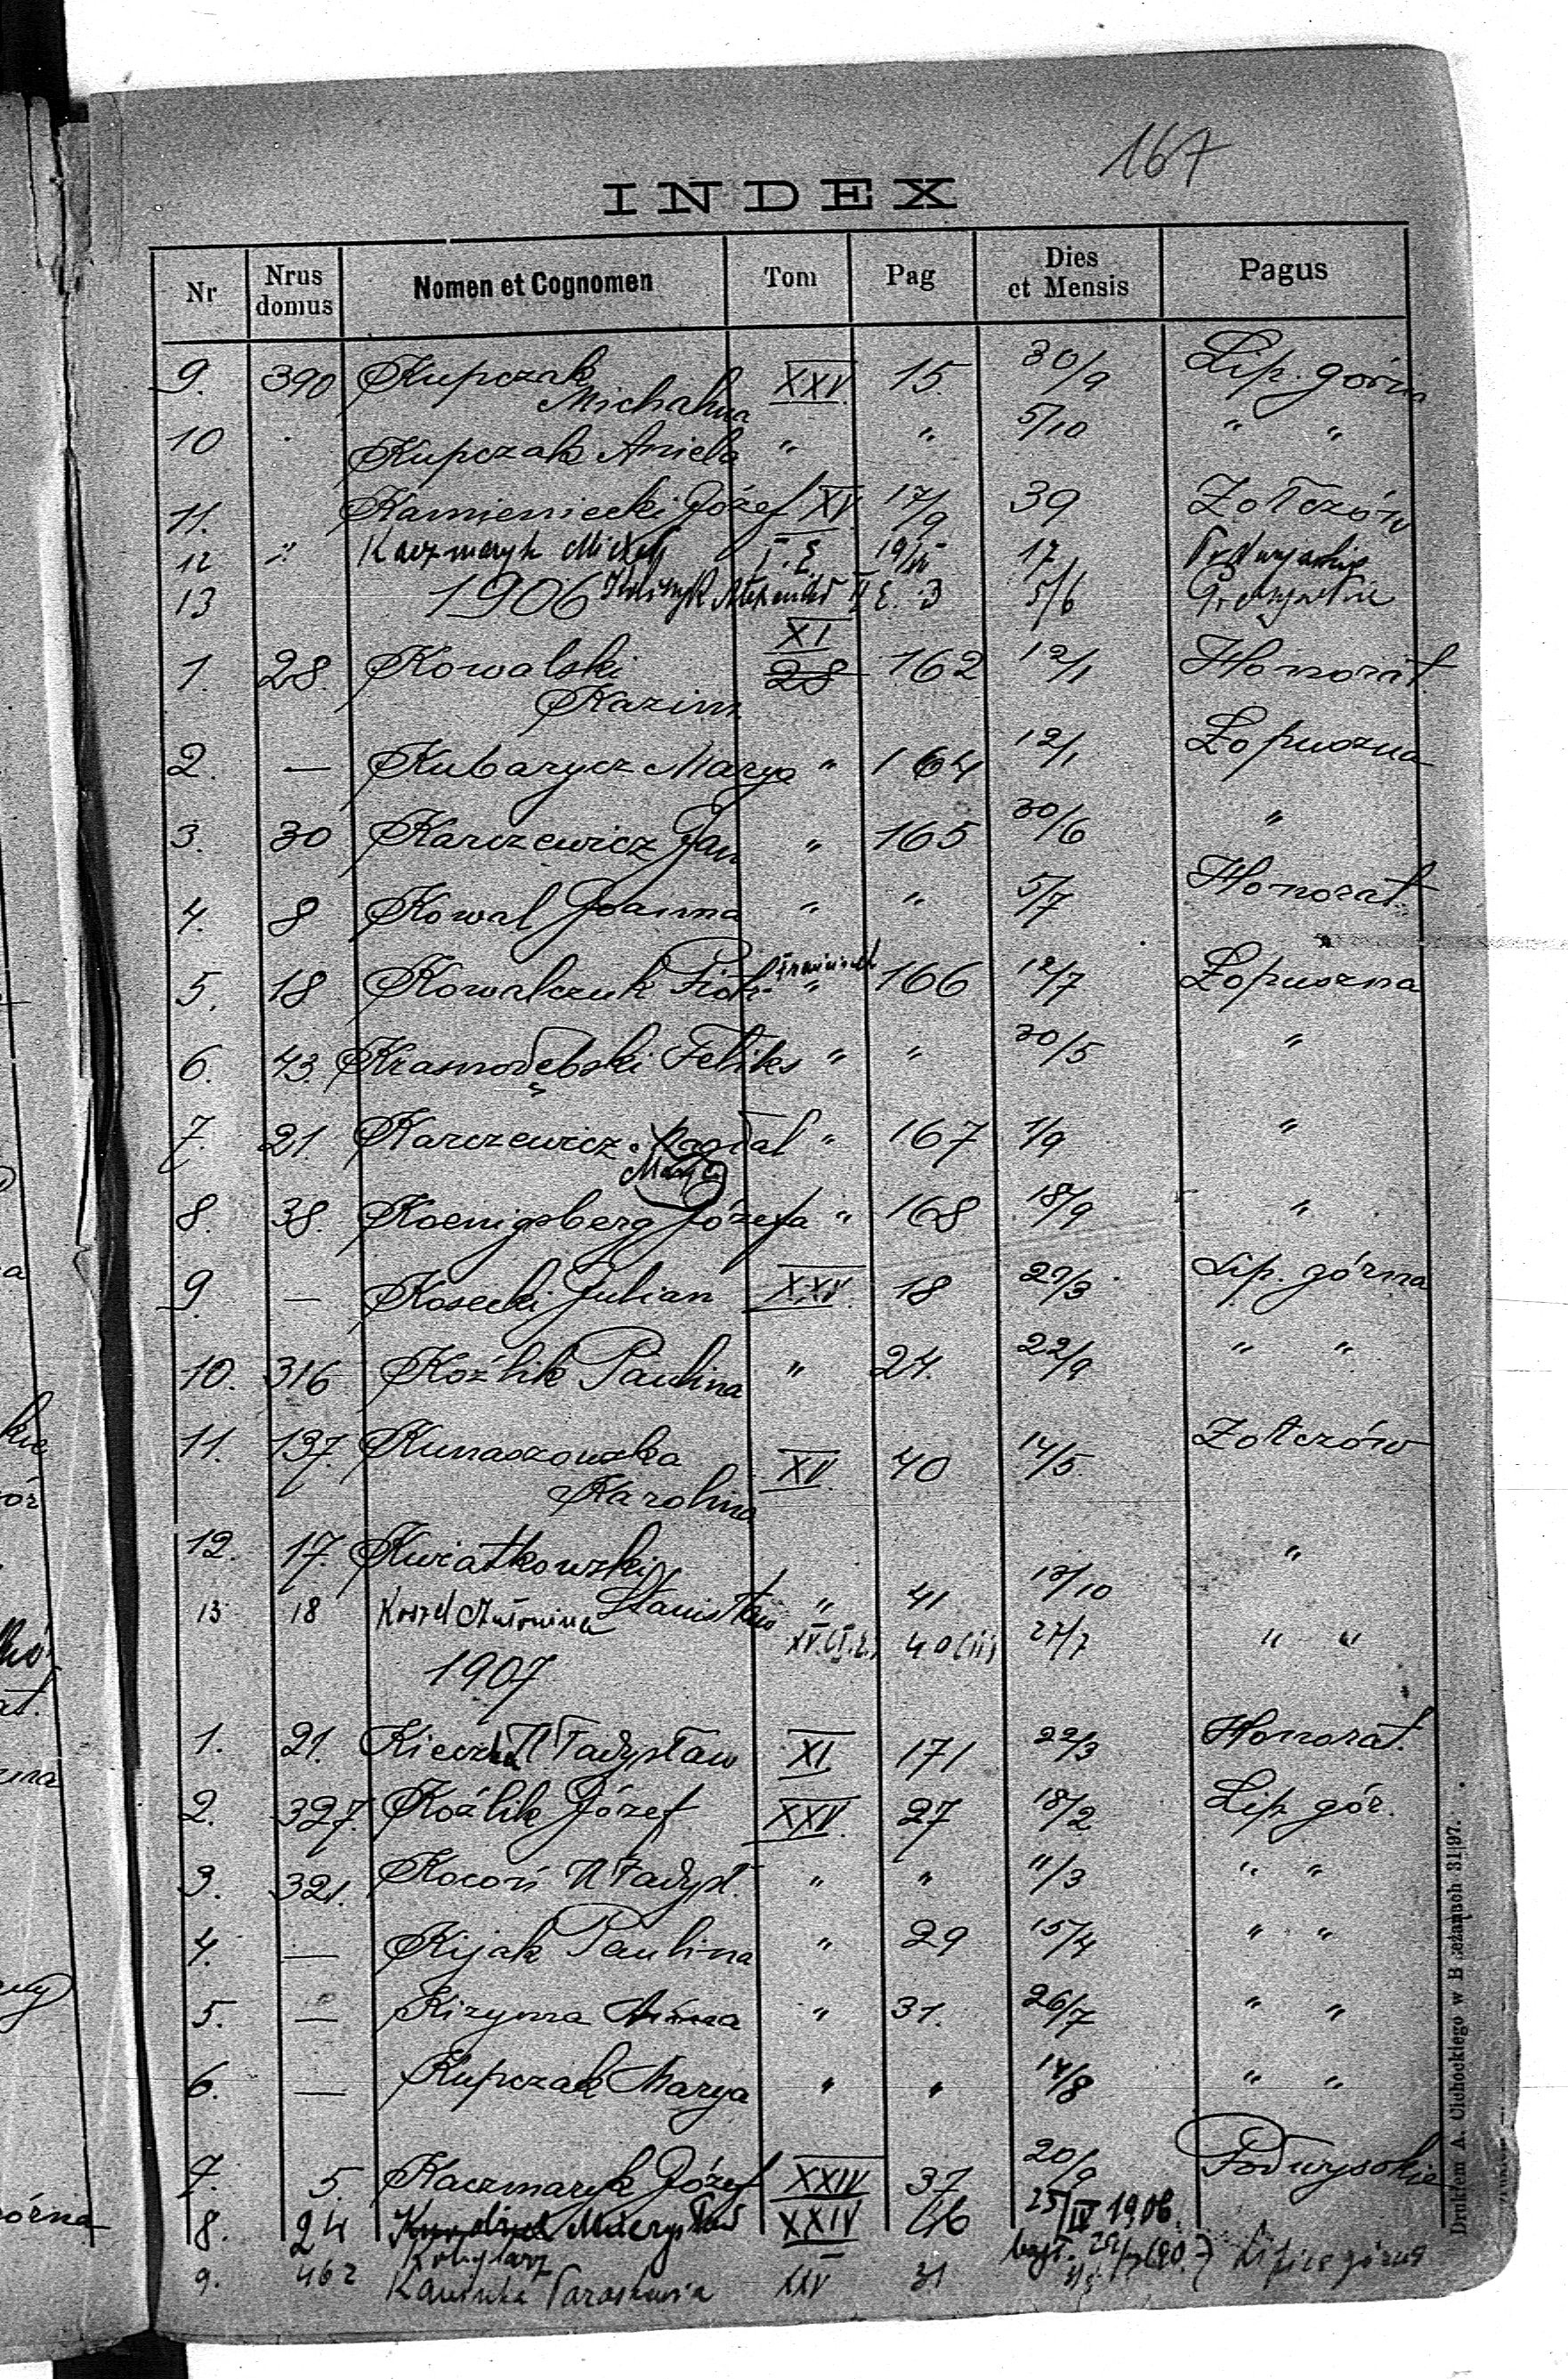 167
INDEX
Nr Nrus domus Nomen et Cognomen Tom Pag Dies et Mensis Pagus
9. 390 Kupczak Michalina XXV. 15. 30/9 Lip. górna
10 Kupczak Aniela " " 5/10 " "
11. Kamieniecki Józef XV. 17/9 39 Zołczów
12 " Kaczmaryk I. E. 19/ 17
13 II E. 3 5/6
1906
1. 28. Kowalski Kazim. XI 28 162 12/1 Honorat.
2. — Kubarycz Marya " 164 12/1 Łopuszna
3. 30 Karczewicz Jan " 165 30/6 "
4. 8 Kowal Joanna " " 5/7 Honorat.
5. 18 Kowalczuk Piotr " 166 12/7 Łopuszna
6. 43. Krasnodębski Feliks " " 30/5 "
7. 21 Karczewicz Magdal " 167 1/9 "
8. 38. Koenigsberg Józefa " 168 18/9 "
9 — Kosecki Julian XXV. 18 29/3 Lip. górna
10. 316 Koźlik Paulina " 24. 22/9 " "
11. 137. Kunaszowska Karolina XV. 40 14/5 Zołczów
12. 17. Kwiatkowski Stanisław " 41 13/10 "
13 18 Antonina 27/7 " "
1907
1. 21. Władysław XI 171 22/3 Honorat.
2. 327. Koźlik Józef XXV. 27 18/2 Lip. gór.
3. 321. Kocoń Władysł. " " 11/3 " "
4. — Kijak Paulina " 29 15/4 " "
5. — Kizyma Anna " 31. 26/7 " "
6. — Kupczak Marya " " 14/8 " "
7. 5. Kaczmaryk Józef XXIV 37 20/9 Podwysokie
8. 24 XXIV 46 25/IV 1906.
Kobylarz
9. 462 Paraskewia XXV 31 Lipica górna
Drukiem A. Cichockiego w Brzeżanach 31|97.